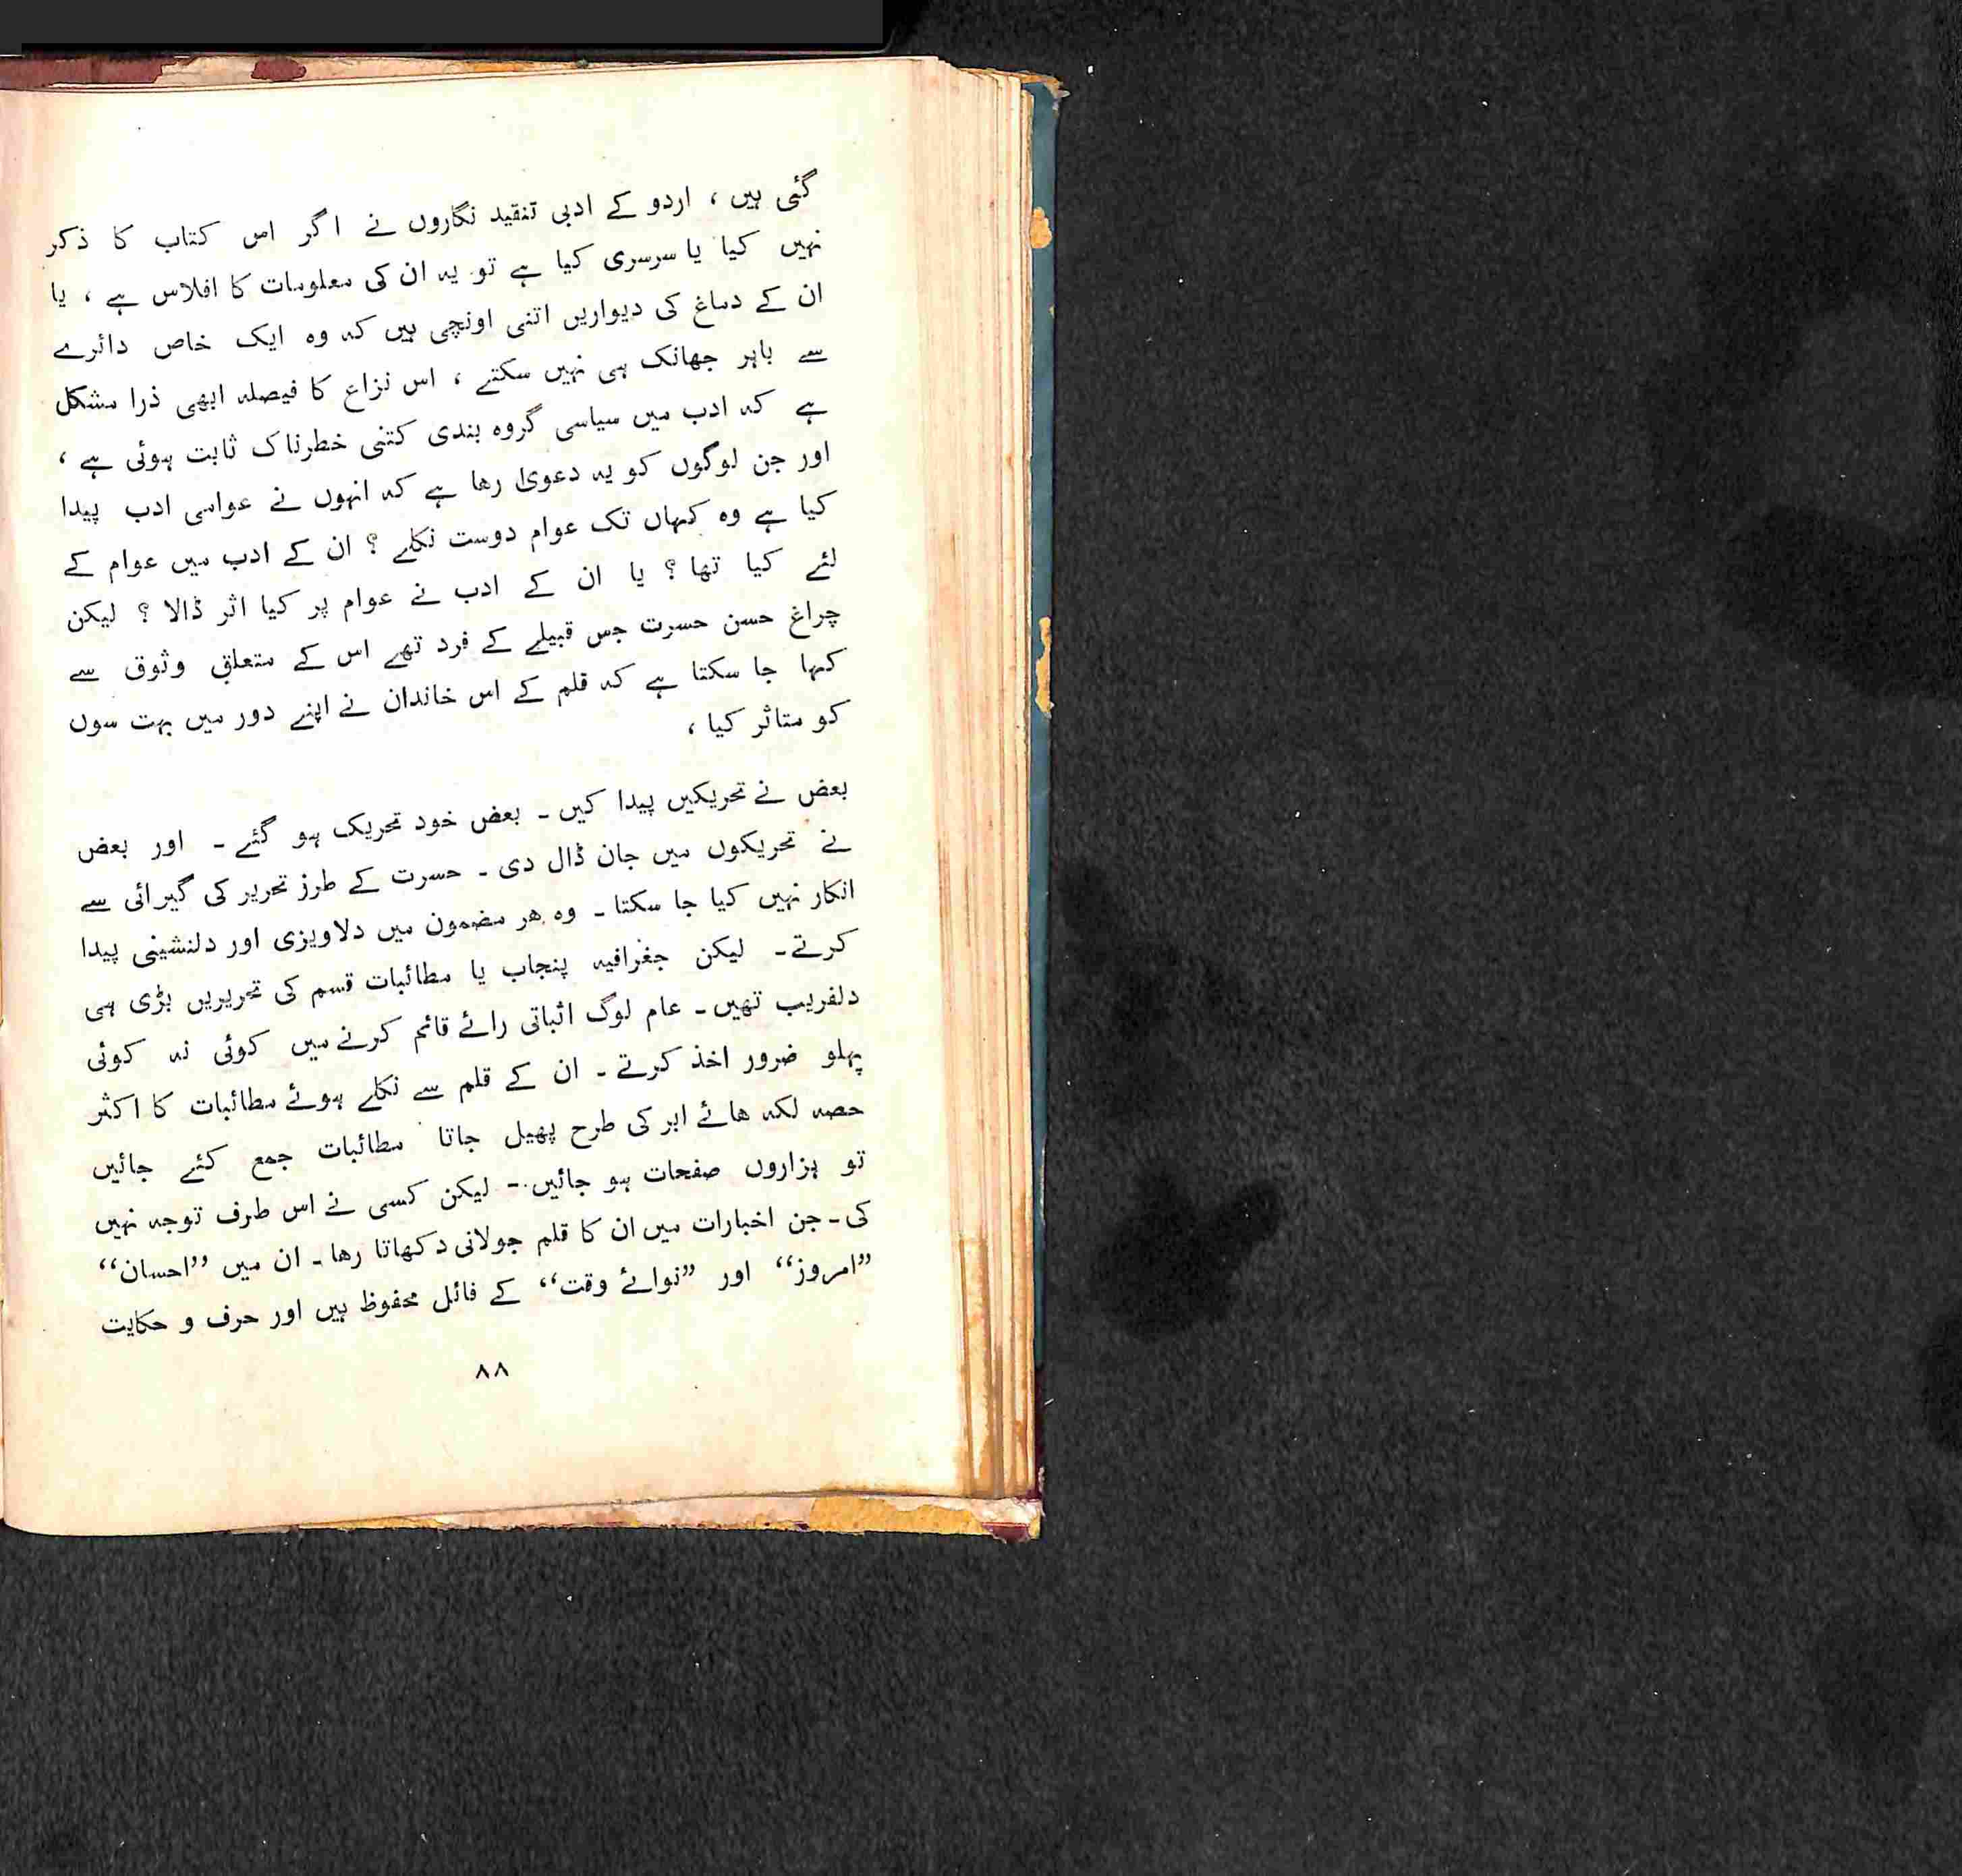 گئی ہیں ، اردو کے ادبی تنقید نگاروں نے اگر اس کتاب کا ذکر
نہیں کیا یا سرسری کیا ہے تو یہ ان کی معلومات کا افلاس ہے ، یا
ان کے دماغ کی دیواریں اتنی اونچی ہیں کہ وہ ایک خاص دائرے
سے باہر جھانک ہی نہیں سکتے ، اس نزاع کا فیصلہ ابھی ذرا مشکل
ہے کہ ادب میں سیاسی گروہ بندی کتنی خطرناک ثابت ہوئی ہے ،
اور جن لوگوں کو یہ دعویٰ رھا ہے کہ انہوں نے عوامی ادب پیدا
کیا ہے وہ کہاں تک عوام دوست نکلے ؟ ان کے ادب میں عوام کے
لئے کیا تھا ؟ یا ان کے ادب نے عوام پر کیا اثر ڈالا ؟ لیکن
چراغ حسن حسرت جس قبیلے کے فرد تھے اس کے متعلق وثوق سے
کہا جا سکتا ہے کہ قلم کے اس خاندان نے اپنے دور میں بہت سوں
کو متاثر کیا ،
بعض نے تحریکیں پیدا کیں ۔ بعض خود تحریک ہو گئے ۔ اور بعض
نے تحریکوں میں جان ڈال دی ۔ حسرت کے طرز تحریر کی گیرائی سے
انکار نہیں کیا جا سکتا ۔ وہ ھر مضمون میں دلاویزی اور دلنشینی پیدا
کرتے ۔ لیکن جغرافیہ پنجاب یا مطائبات قسم کی تحریریں بڑی ہی
دلفریب تھیں ۔ عام لوگ اثباتی رائے قائم کرنے میں کوئی نہ کوئی
پہلو ضرور اخذ کرتے ۔ ان کے قلم سے نکلے ہوئے مطائبات کا اکثر
حصہ لکہ ھائے ابر کی طرح پھیل جاتا مطائبات جمع کئے جائیں
تو ہزاروں صفحات ہو جائیں ۔ لیکن کسی نے اس طرف توجہ نہیں
کی ۔ جن اخبارات میں ان کا قلم جولانی دکھاتا رھا ۔ ان میں ”احسان“
”امروز“ اور ”نوائے وقت“ کے فائل محفوظ ہیں اور حرف و حکایت
۸۸